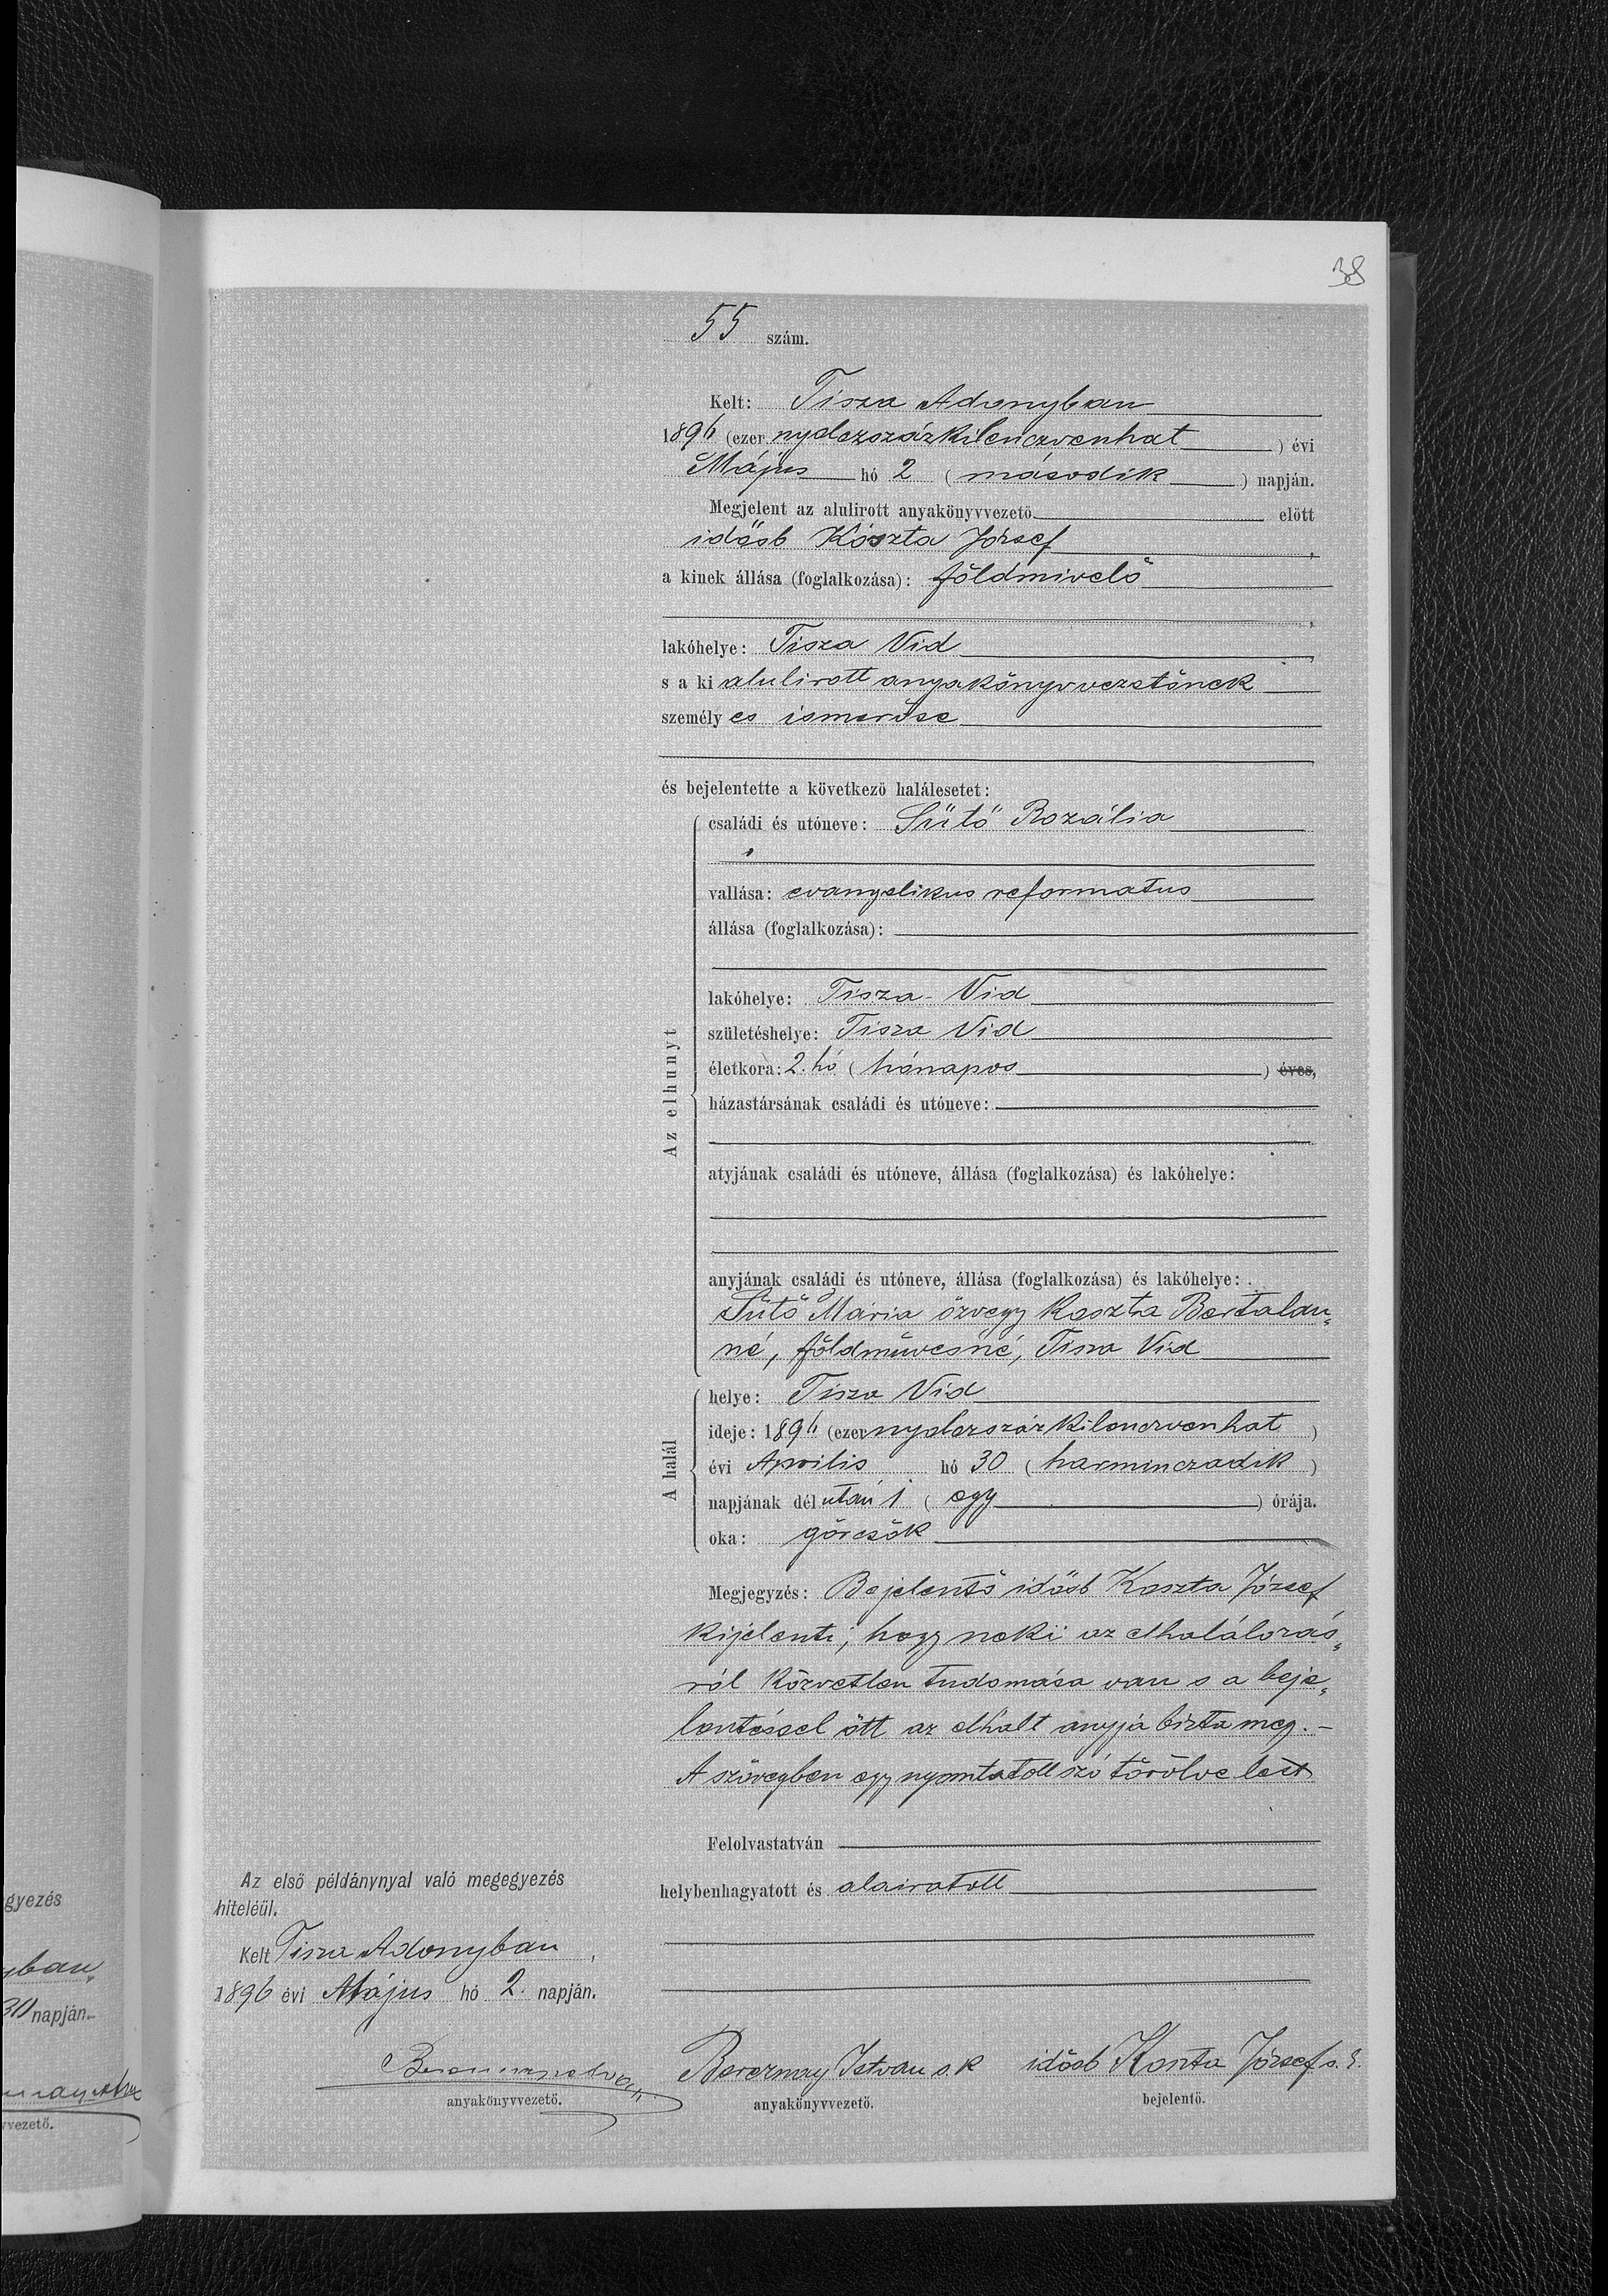 38
55 szám.
Kelt: Tisza Adonyban
1896 (ezer nyolczszázkilenczvenhat) évi
Május hó 2 (második) napján.
Megjelent az alulirott anyakönyvvezető előtt
idősb Koszta József,
a kinek állása (foglalkozása): földmivelő
,
lakóhelye: Tisza Vid,
s a ki alulirott anyakönyvvezetőnek
személyes ismerőse
és bejelentette a következő halálesetet:
Az elhunyt
családi és utóneve: Sütő Rozália
vallása: evangelikus reformatus
állása (foglalkozása):
lakóhelye: Tisza-Vid
születéshelye: Tisza Vid
életkora: 2. hó (hónapos) éves,
házastársának családi és utóneve:
atyjának családi és utóneve, állása (foglalkozása) és lakóhelye:
anyjának családi és utóneve, állása (foglalkozása) és lakóhelye:
Sütő Mária özvegy Koszta Bertalan„
né, földmüvesné, Tisza Vid
A halál
helye: Tisza Vid
ideje: 1896 (ezer nyolczszázkilenczvenhat)
évi Aprilis hó 30 (harminczadik)
napjának délután 1 (egy) órája.
oka: görcsök
Megjegyzés: Bejelentő idősb Koszta József
kijelenti, hogy neki az elhalálozás„
ról közvetlen tudomása van s a beje„
lentéssel őtt az elhalt anyja bizta meg. –
A szövegben egy nyomtatott szó törölve lett
Felolvastatván
helybenhagyatott és alairatott
Az első példánynyal való megegyezés
hiteléül.
Kelt Tisza Adonyban,
1896 évi Május hó 2. napján.
anyakönyvvezető.
Bereznay Istvan s. k
anyakönyvvezető.
idősb Koszta József s. k.
bejelentő.
gyezés
yban„
30 napján.
vvezető.